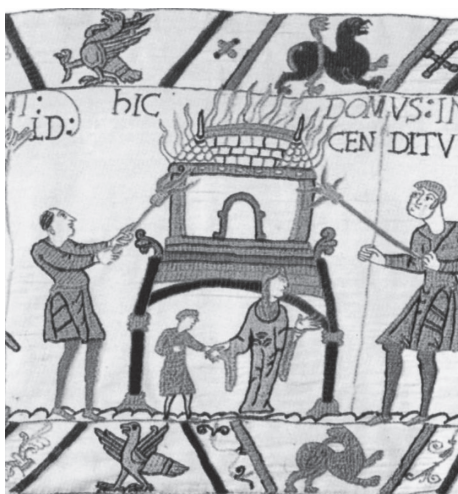 HIC DOMVS: IN
CENDITV